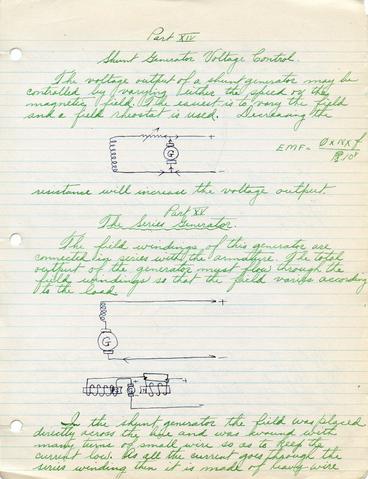 Part XIV
Shunt Generator Voltage Control.
The voltage output of a shunt generator may be
controlled by varying either the speed or the
magnetic field. The easiest is to vary the field
and a field rheostat is used. Decreasing the
+
G
-
EMF =
resistance will increase the voltage output.
Part XV
The Series Generator.
The field windings of this generator are
connected in series with the armature. The total
output of the generator must flow through the
field windings so that the field varies according
to the load.
+
G
-
+
-
In the shunt generator the field was placed
directly across the line and was wound with
many turns of small wire so as to keep the
current low. As all the current goes through the
series winding then it is made of heavy wire